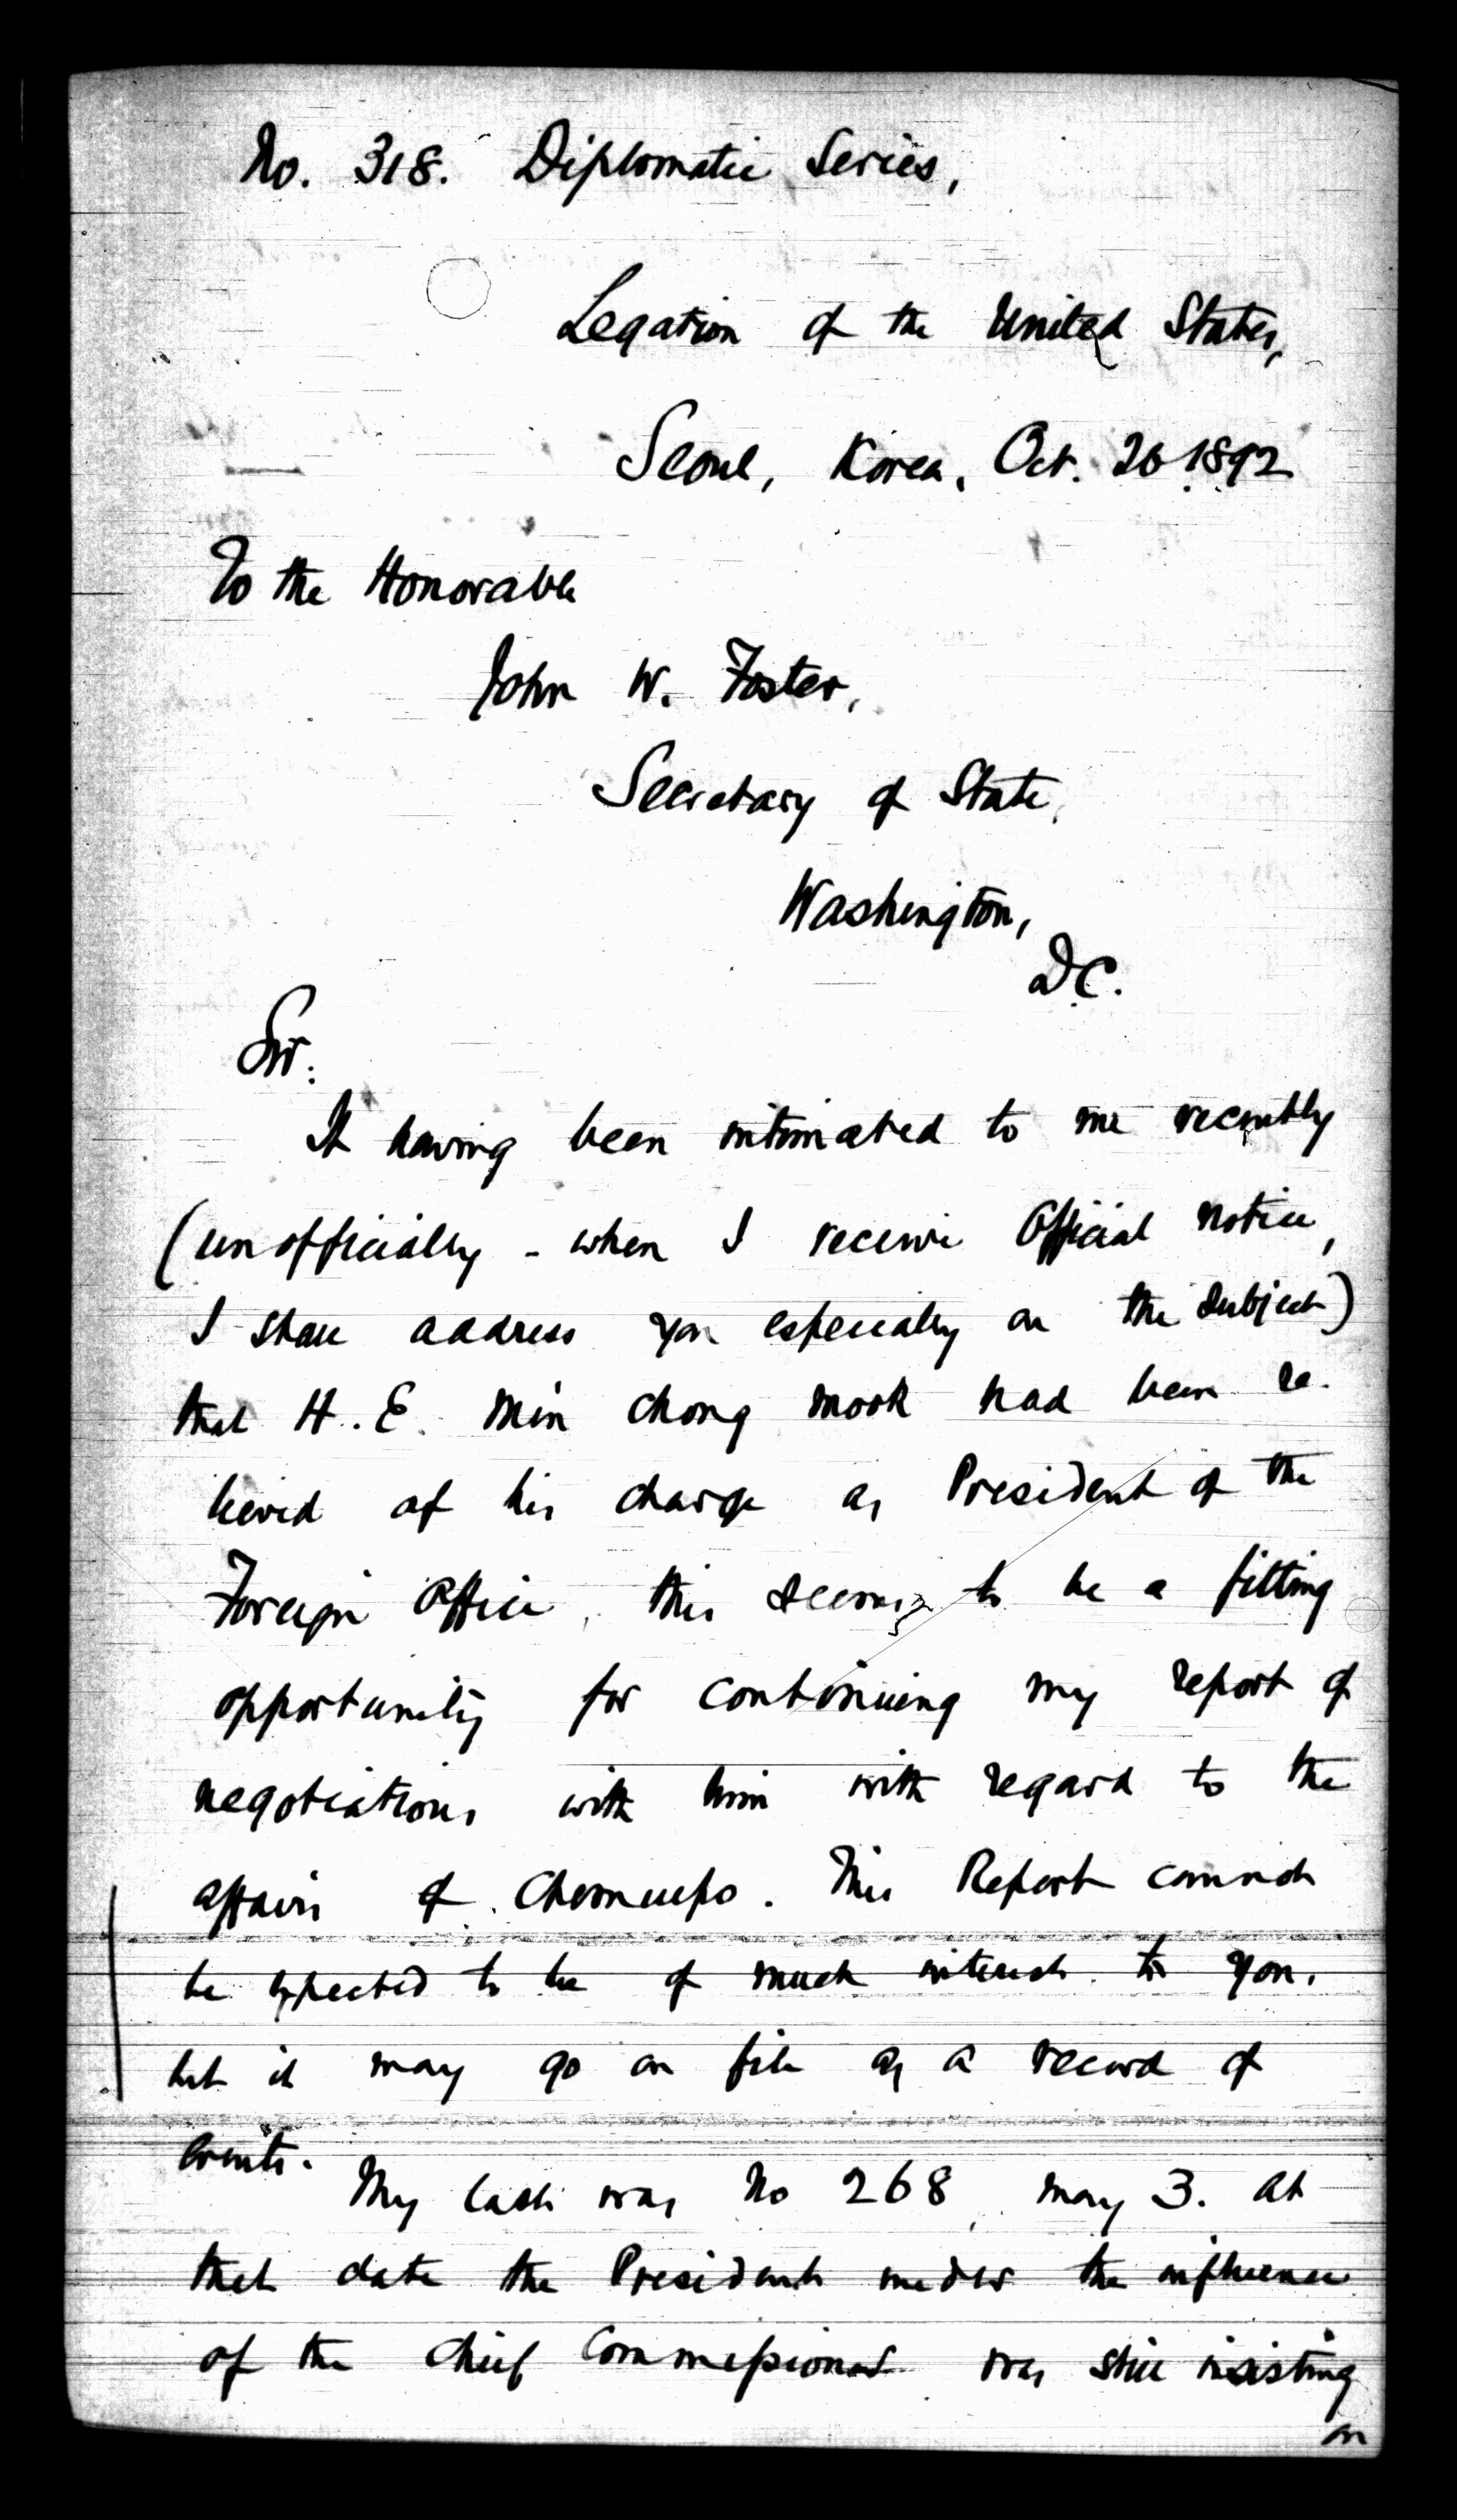 No. 318. Diplomatic Series,
Legation of the United States,
Seoul, Korea, Oct. 26 1892
To the Honorable
John W. Foster,
Secretary of State,
Washington,
D.C.
Sir:
It having been intimated to me recently
(unofficially - when I receive Official notice,
I shall address you especially on the subject)
that H. E. Min Chong Mook had been re-
lieved of his charge as President of the
Foreign Office, this seems to be a fitting
opportunity for continuing my report of
negotiations with him with regard to the
affairs of Chemulpo. This Report cannot
be expected to be of much interest to you,
but it may go on file as a record of
events.
My last was No 268, May 3. At
that date the President under the influence
of the Chief Commissioner was still insisting
on